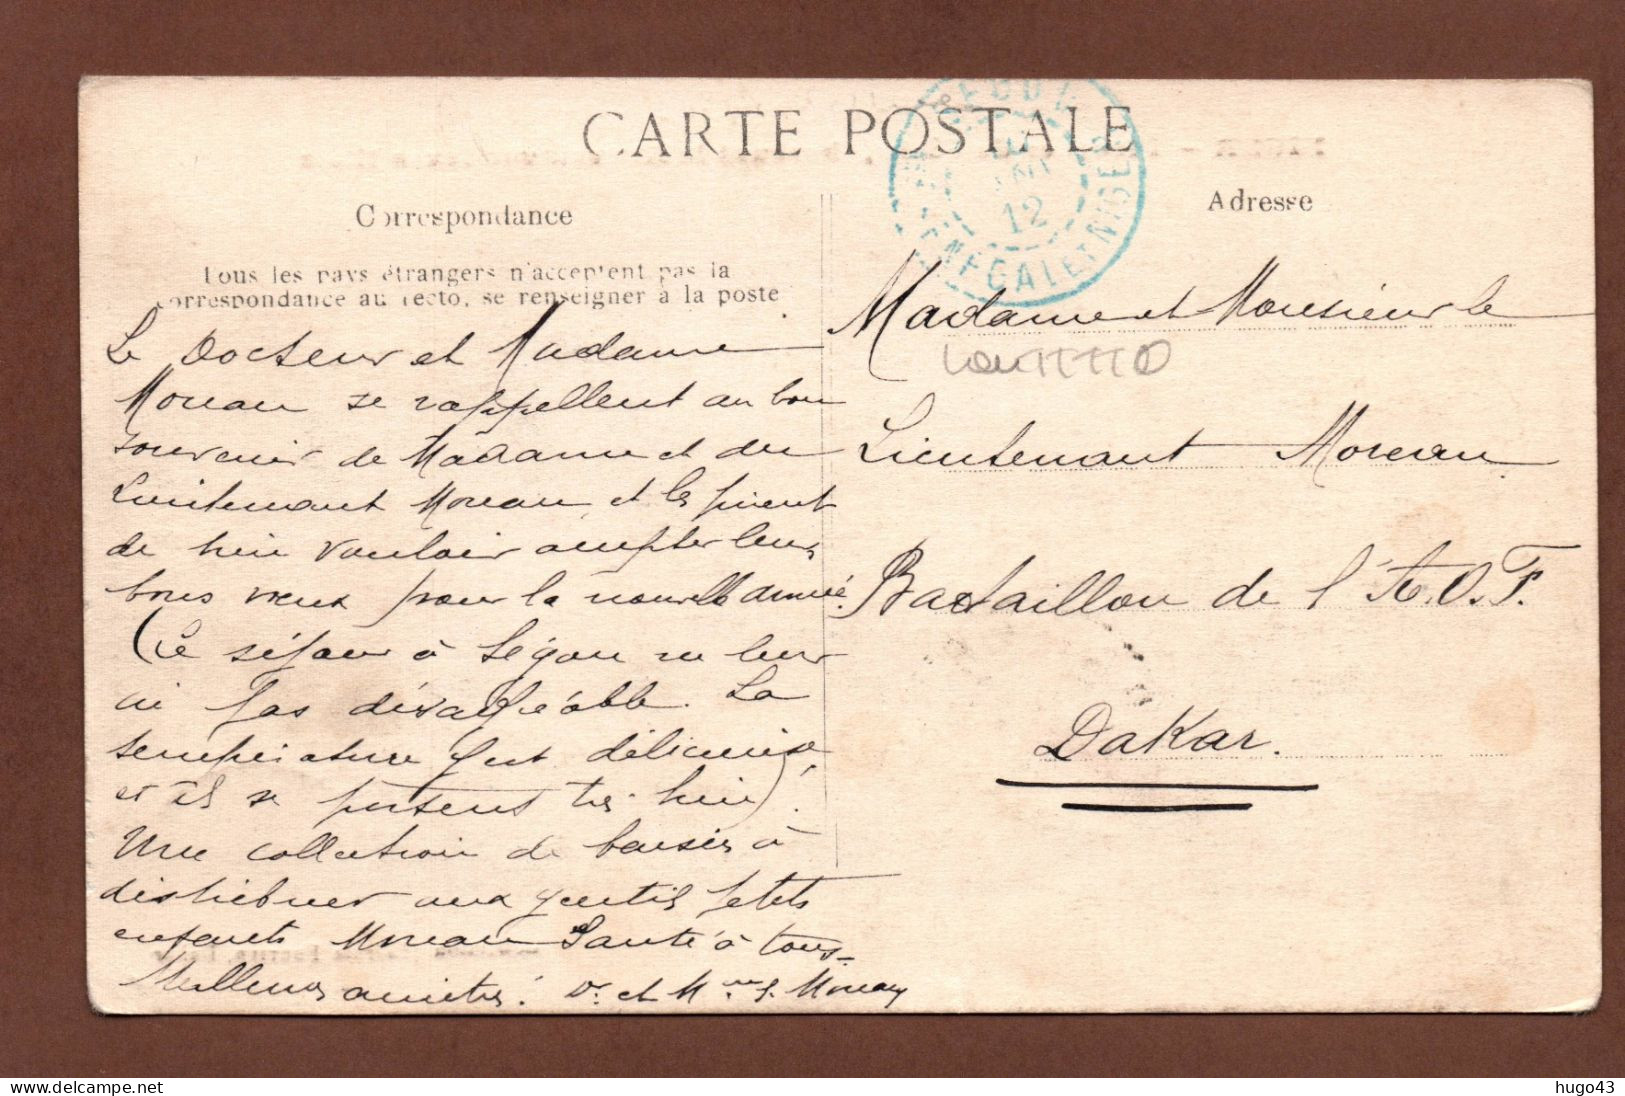 CARTE POSTALE
Correspondance
Tous les pays étrangers n'acceptent pas la
correspondance au recto, se renseigner à la poste
Le Docteur et Madame
Moreau se rappellent au bon
souvenir de Madame et du
Lieutenant Moreau, et les prient
de bien vouloir accepter leurs
bons vœux pour la nouvelle année.
(Le séjour à Ségou ne leur
est pas désagréable. La
température y est délicieuse,
et ils se portent très bien).
Une collection de baisers à
distribuer aux gentils petits
enfants Moreau Santé à tous-
Meilleures amitiés. Dr. et Mme Moreau
SEGOU
12
SENEGAL NIGER
Adresse
Madame et Monsieur le
Lieutenant Moreau
Bataillon de l'A.O.F.
Dakar.
www.delcampe.net
hugo43